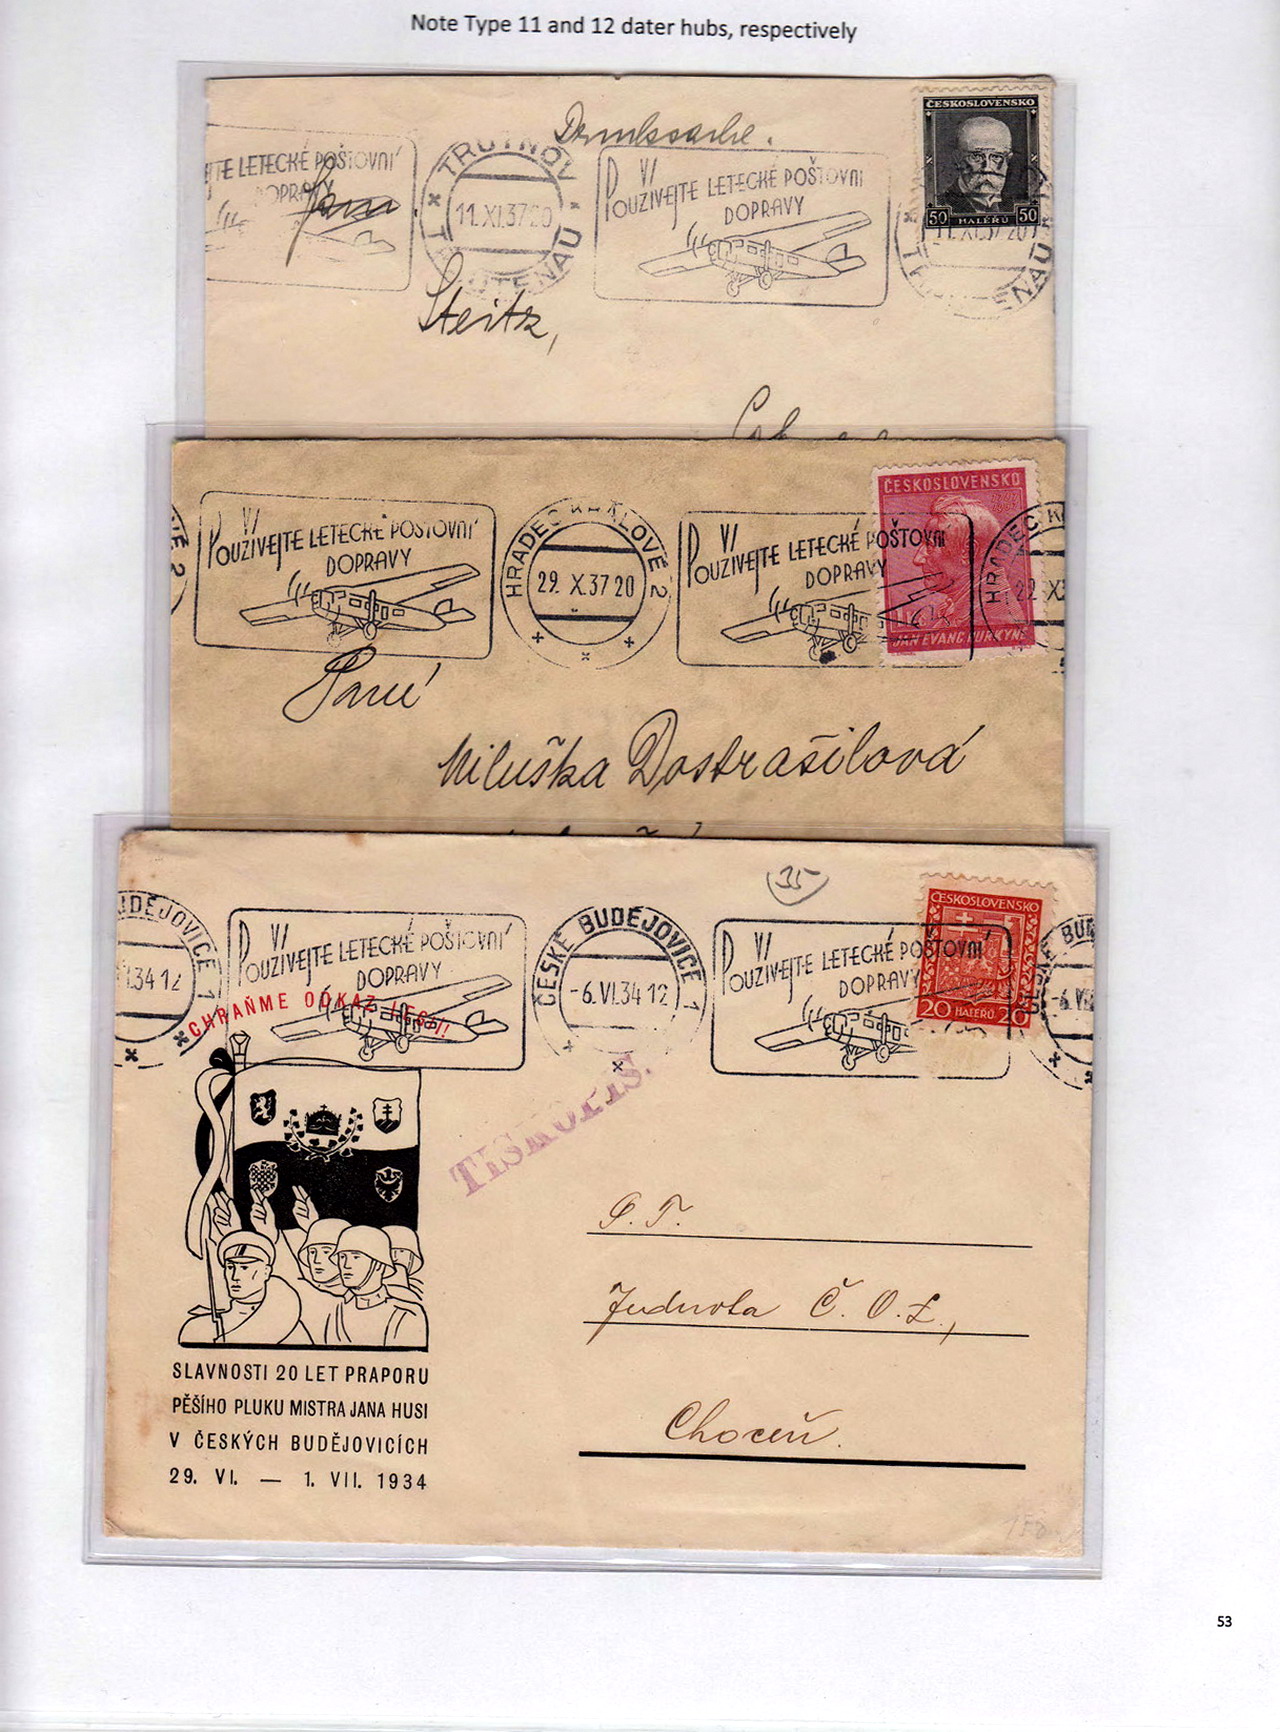 Note Type 11 and 12 dater hubs, respectively
Drucksache.
ČESKOSLOVENSKO
50 HALÉŘŮ 50
JTE LETECKÉ POŠTOVNÍ
DOPRAVY
TRUTNOV
11.XI.37 20
TRUTENAU
POUŽÍVEJTE LETECKÉ POŠTOVNÍ
DOPRAVY
11.XI.37 20
ENAU
Steitz,
KÉ 2
POUŽÍVEJTE LETECKÉ POŠTOVNÍ
DOPRAVY
HRADEC KRÁLOVÉ 2
29. X.37 20
POUŽÍVEJTE LETECKÉ POŠTOVNÍ
DOPRAVY
ČESKOSLOVENSKO
JAN EVANG. PURKYNĚ
HRADEC K
Paní
Miluška Dostrašilová
35
BUDĚJOVICE 1
.34 12
POUŽÍVEJTE LETECKÉ POŠTOVNÍ
DOPRAVY
ČESKÉ BUDĚJOVICE 1
-6.VI.34 12
POUŽÍVEJTE LETECKÉ POŠTOVNÍ
DOPRAVY
ČESKOSLOVENSKO
20 HALÉŘŮ 20
-6.VI
CHRAŇME ODKAZ LEGIÍ!
TISKOPIS.
P. T.
Jednota Č. O. L.,
Choceň.
SLAVNOSTI 20 LET PRAPORU
PĚŠÍHO PLUKU MISTRA JANA HUSI
V ČESKÝCH BUDĚJOVICÍCH
29. VI. — 1. VII. 1934
53